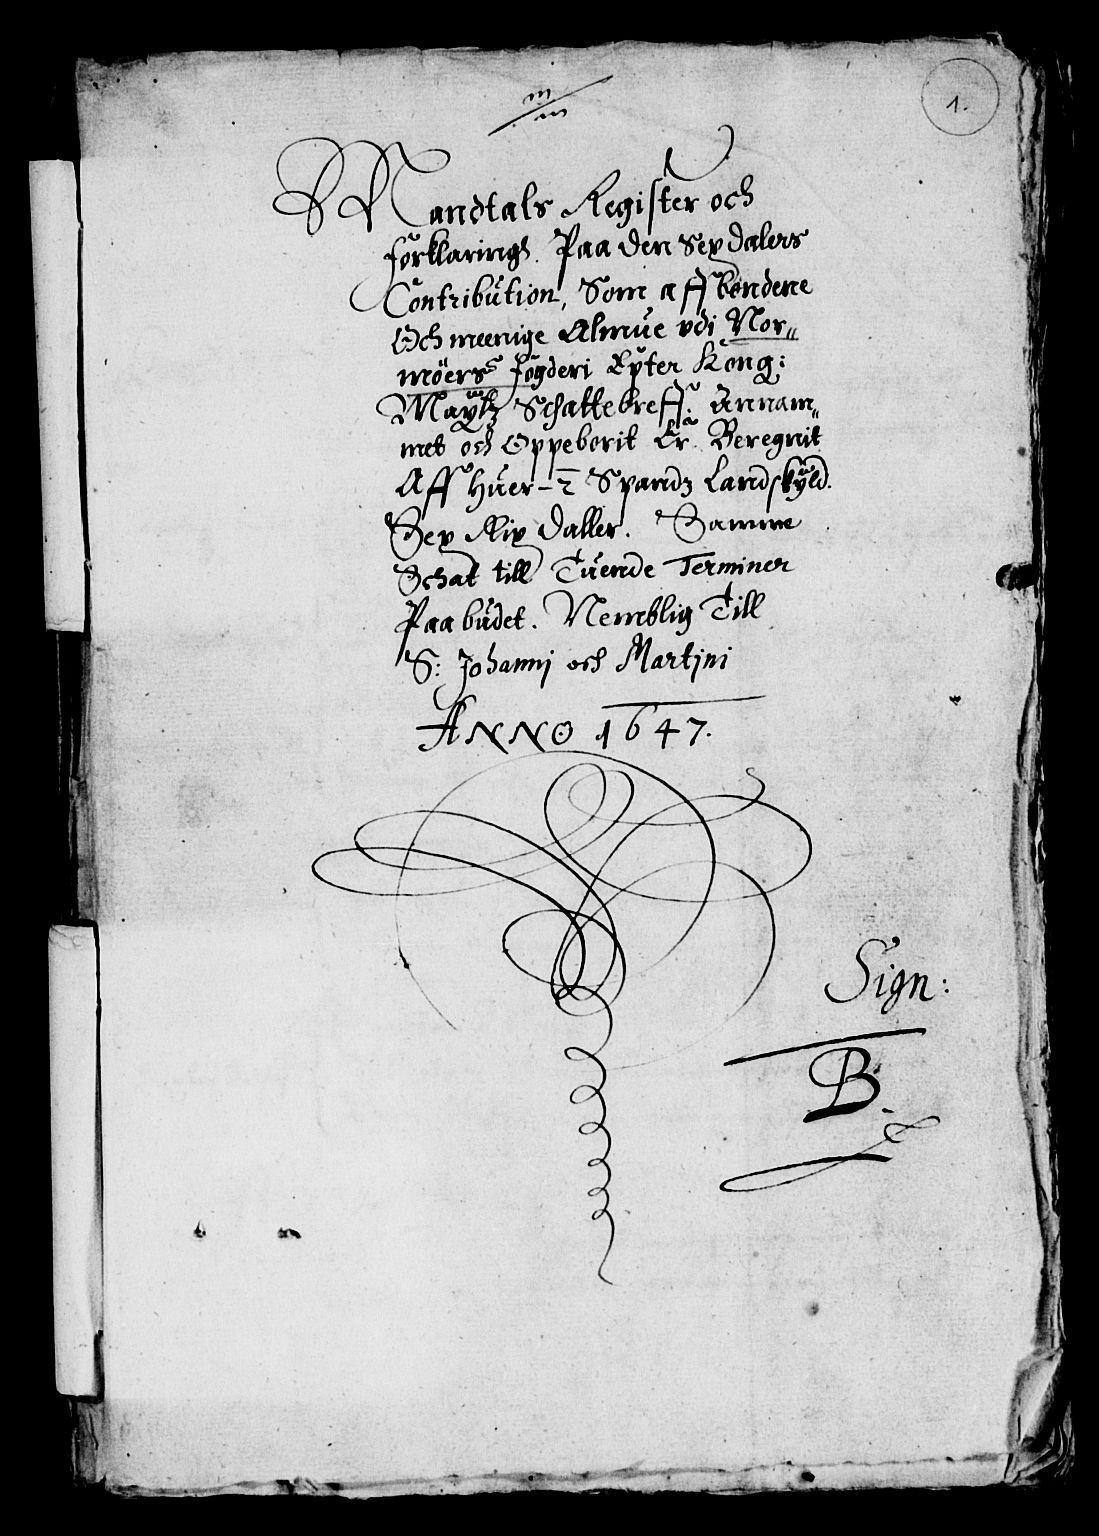 1.
Mandtals Register och
forklaring. Paa den Sex dalers
Contribution, Som aff bøndene
Och meenige Almue vdi Nor„
möers fogderi Epter Kong:
Maytz Schattebreff. Annam„
met och Oppeborit Er. Beregnit
Aff huer 2 Spandz Landskyld.
Sex Rix daller. Samme
Schat till Tuende Terminer
Paabudet. Nemblig Till
S: Johannj och Martjni
ANNO 1647.
Sign:
B.